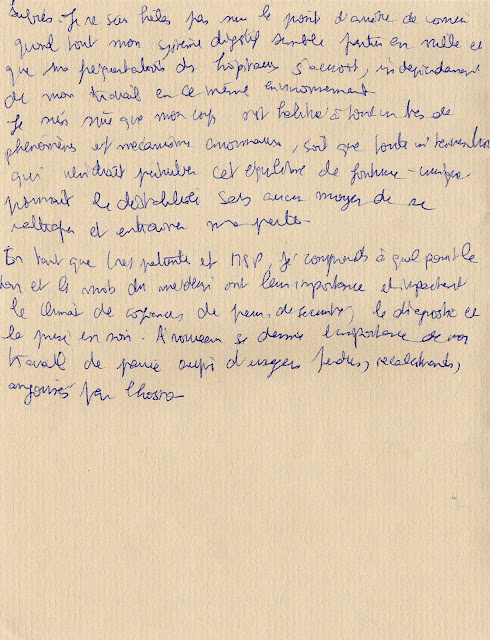 suivies. Je ne sais hélas pas sur le point d'arrêter de courir
quand tout mon système digestif semble partir en vrille et
que ma fréquentation des hôpitaux s'accroît, indépendamment
de mon travail en ce même environnement.
Je suis sûre que mon corps est habitué à tout un tas de
phénomènes et mécanismes anormaux, soit que toute intervention
qui viendrait perturber cet équilibre de fortune
pourrait le déstabiliser sans aucun moyen de se
rattraper et entraîner ma perte.
En tant que patiente et MSP, je comprends à quel point le
ton et les mots du médecin ont leur importance et impactent
le climat de confiance, de peur, de sécurité, le diagnostic et
la prise en soin. A nouveau se dessine l'importance de mon
travail de paire auprès d'usagers perdus, récalcitrants,
angoissés par l'hosto.